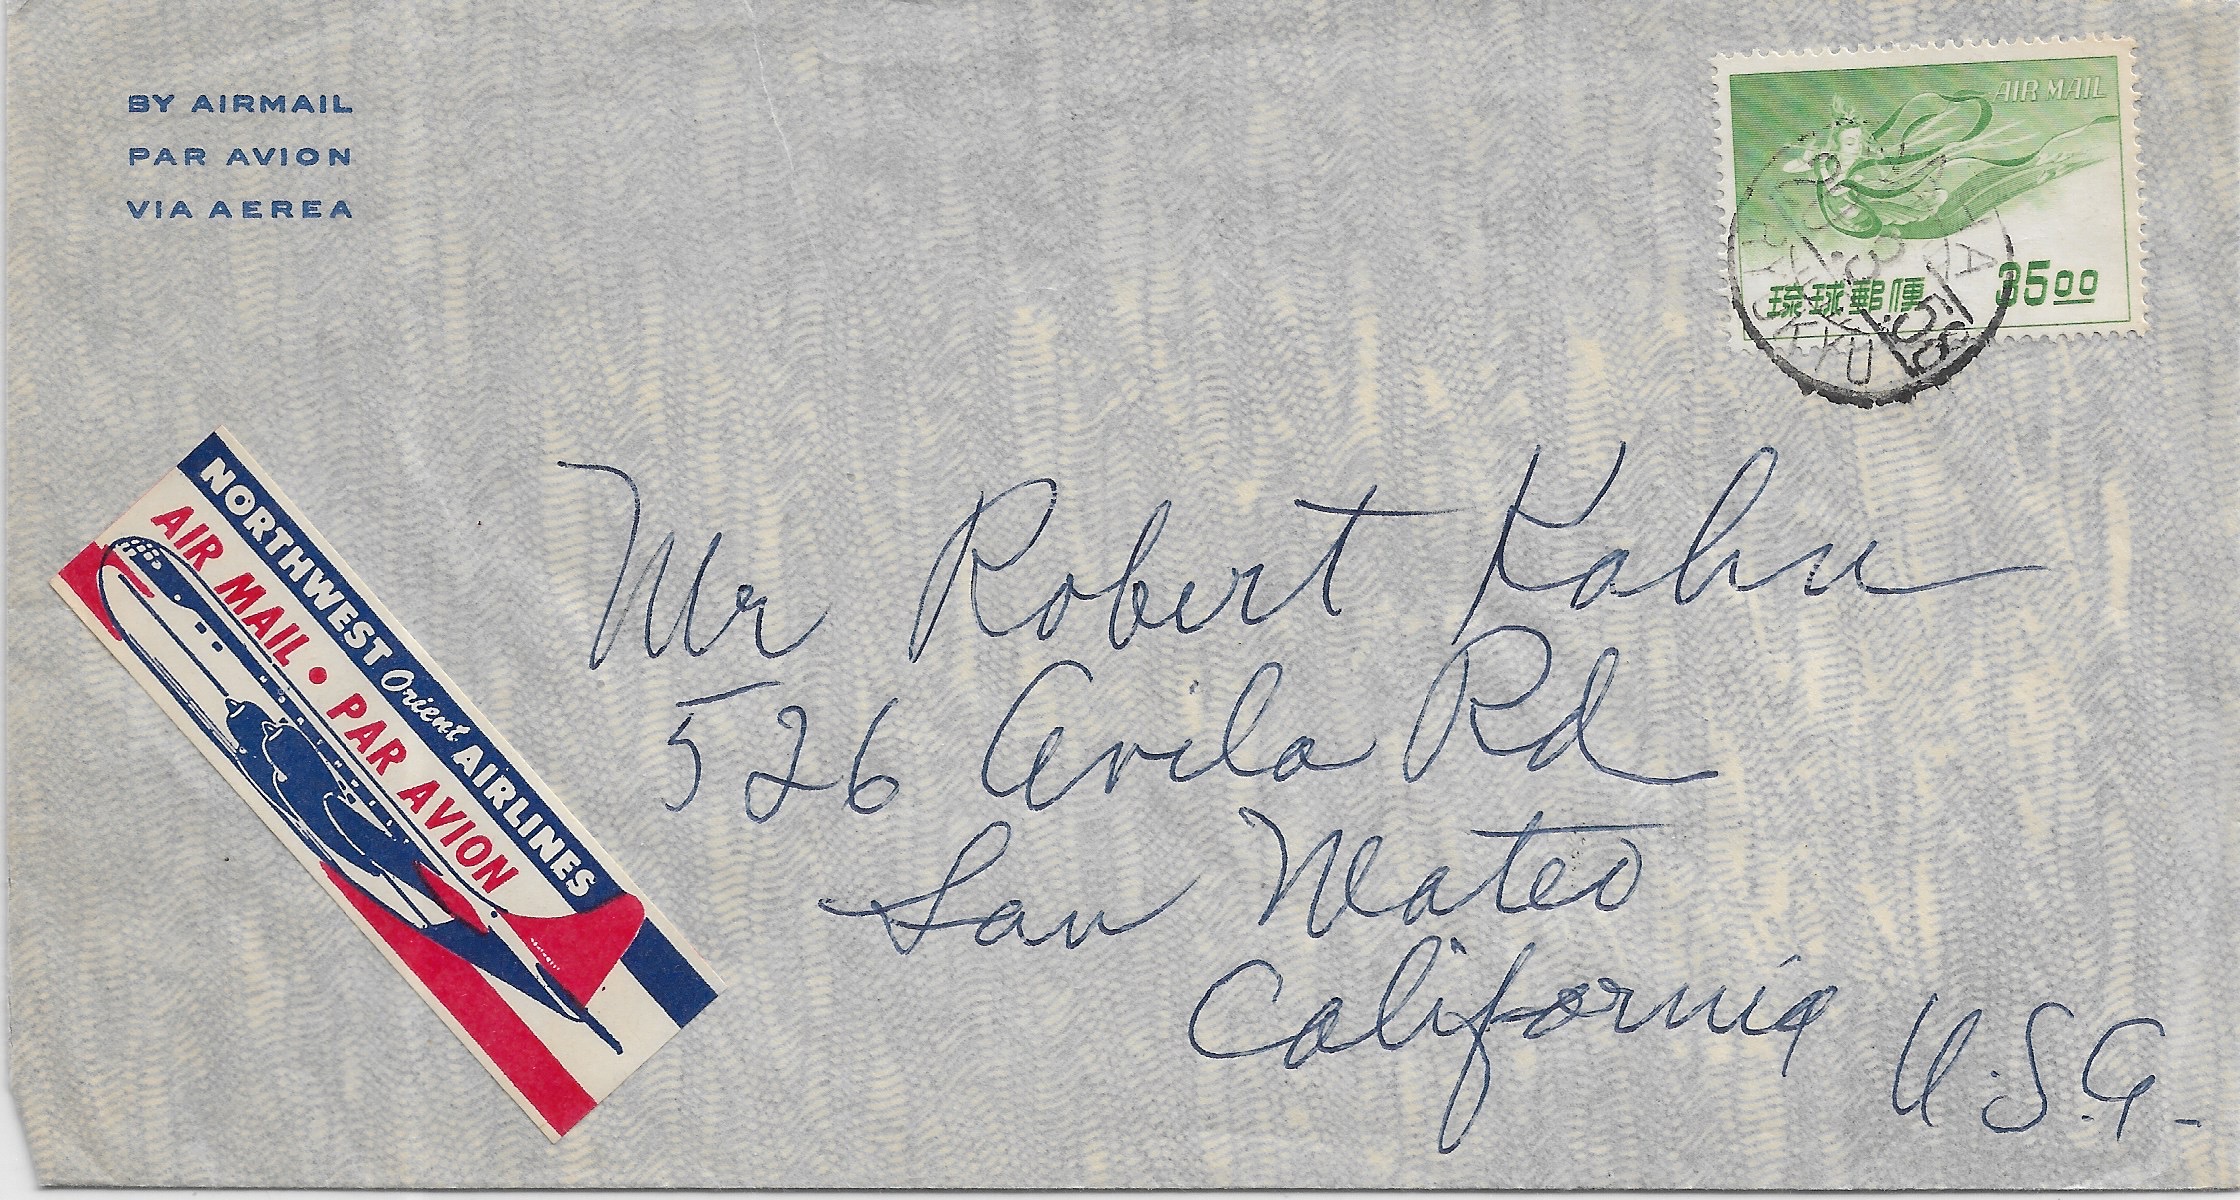 BY AIRMAIL
PAR AVION
VIA AEREA
AIR MAIL
琉球郵便 3500
RYUKYU
58
NORTHWEST Orient AIRLINES
AIR MAIL • PAR AVION
Mr Robert Kahn
526 Avila Rd
San Mateo
California
U.S.A.